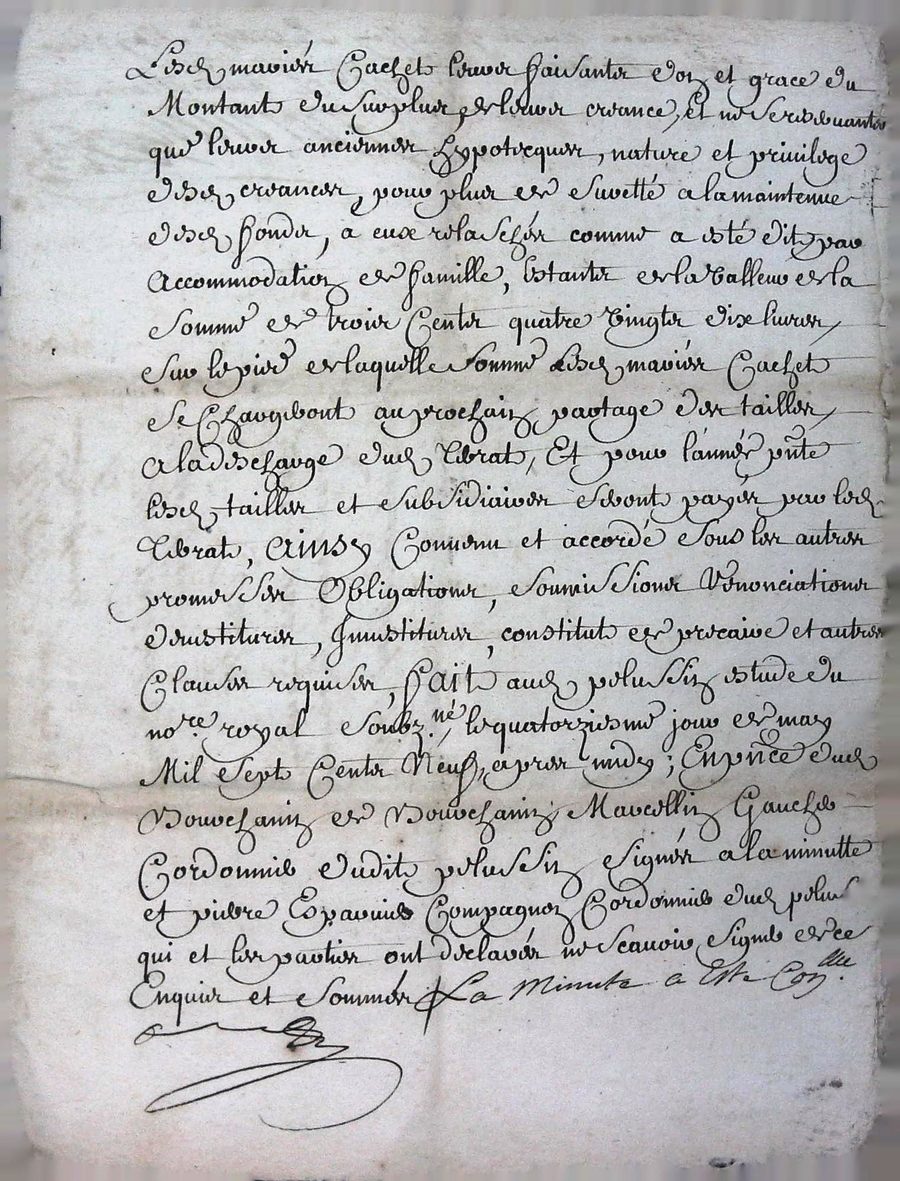 Lesd mariés Cachet leurs faisants don et grace du
Montant du surplus de leurs creance, et ne se reservants
que leurs anciennes hypotecques, nature et privilege
desd creances, pour plus de suretté a la maintenue
desd fonds, a eux relaschés comme a esté dit par
Accommodation de famille, estants de la valleur de la
Somme de trois Cents quatre vingts dix livres,
Sur le pied de laquelle Somme Lesd mariés Cachet
Se Chargeront au prochain partage des tailles,
A la descharge dud, Et pour l'année pnte
lesd tailles et subsidiaires seront payés par led
Ainsy Convenu et accordé sous les autres
promesses Obligations, soumissions Renonciations
devestitures, Investitures, constitut de precaire et autres
Clauses requises, fait aud pelussin estude du
no.re royal soubz.né, le quatorziesme jour de may
Mil Sept Cents Neuf, apres midy ; En pnce dud
Bourchanin de Bourchanin, Marcellin Gaucher
Cordonnier dudit pelussin signés a la minutte
et pierre Compagnon Cordonnier dud pelus
qui et les parties ont declarés ne scavoir signer de ce
Enquis et sommés La Minute a Esté Con.llée